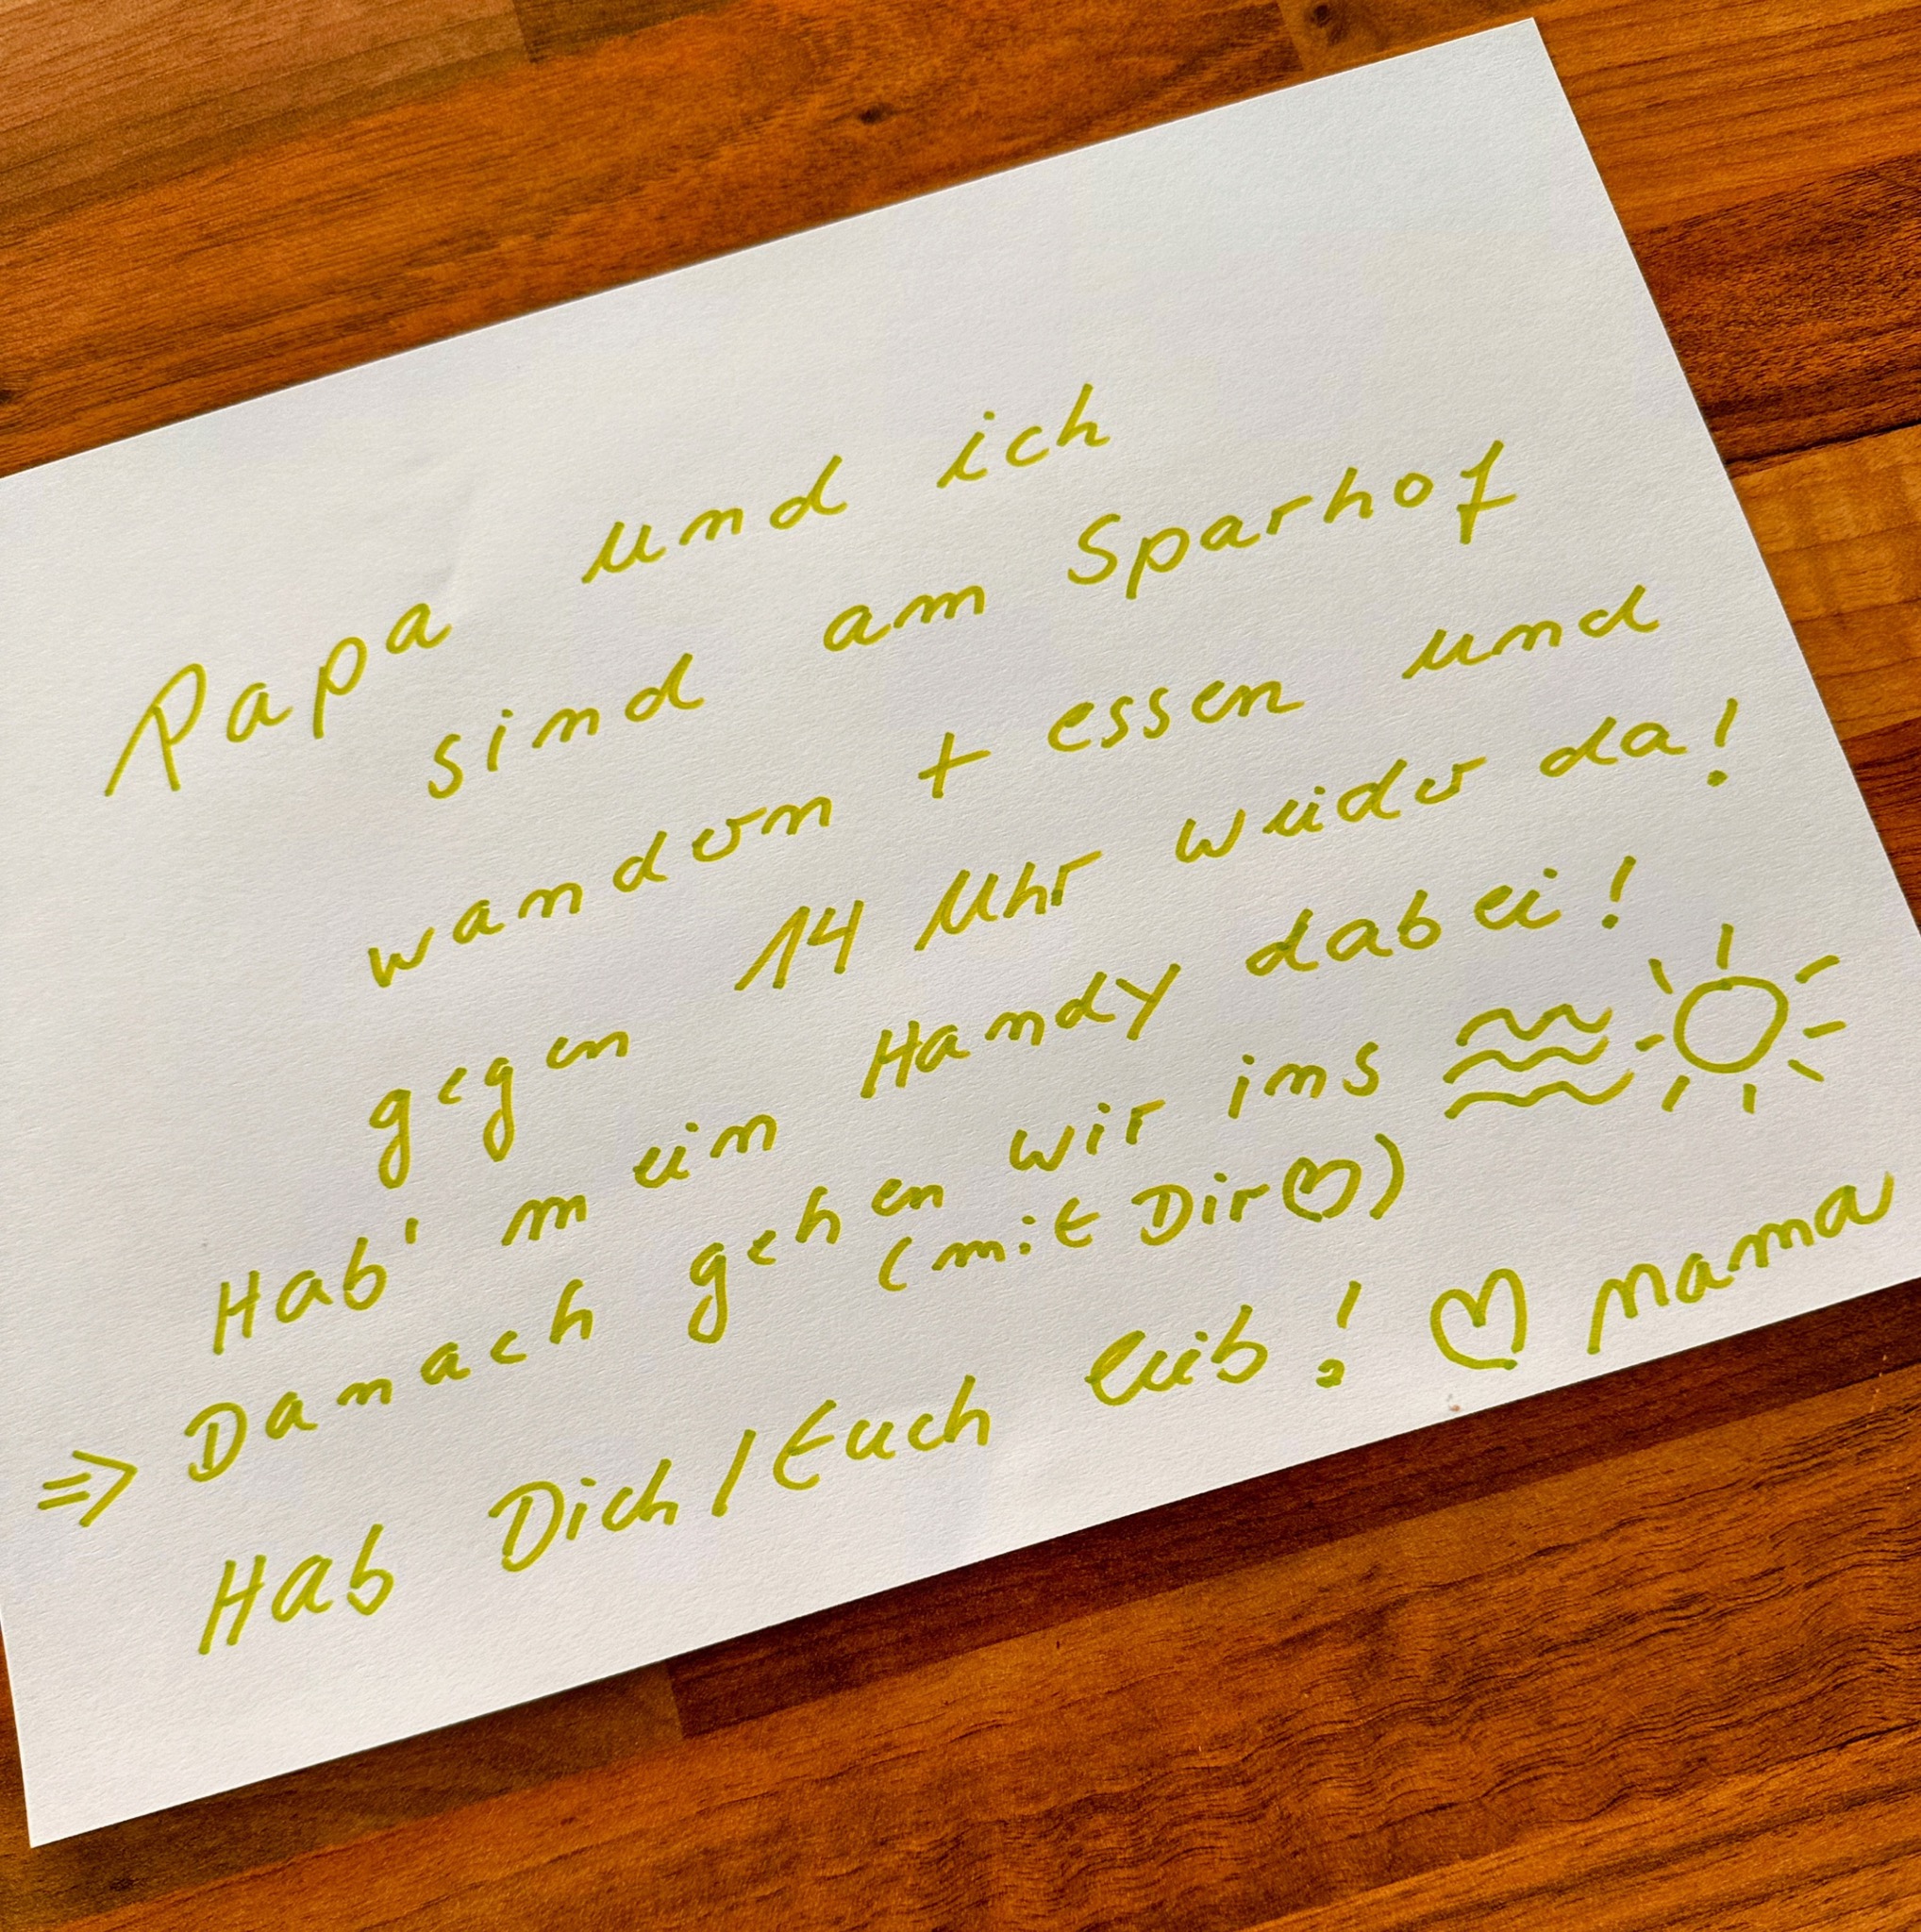 Papa und ich
sind am Sparhof
wandern + essen und
gegen 14 Uhr wieder da!
Hab' mein Handy dabei!
=> Danach gehen wir ins
(mit Dir♡)
Hab Dich/Euch lieb! ♡ Mama